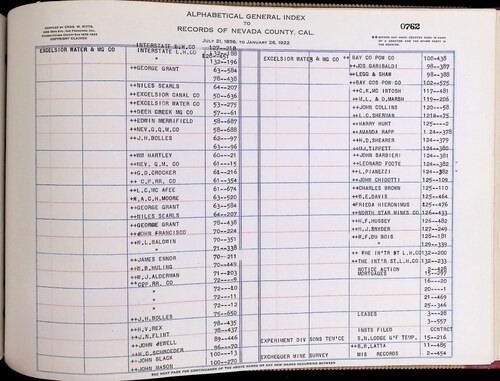 COMPILED BY CHAS. W. KITTS,
COPYRIGHT CLAIMED
ALPHABETICAL GENERAL INDEX
TO
RECORDS OF NEVADA COUNTY, CAL.
JULY 21, 1856, TO JANUARY 26, 1922
0762
EXCELSIOR WATER & MG CO
++GEORGE GRANT 63-584
78-438
++NILES SEARLS 64-207
++EXCELSIOR CANAL CO 50-636
++EXCELSIOR WATER CO 53-275
++DEER CREEK MG CO 57-61
++EDWIN MERRIFIELD 58-687
++NEV.G.Q.M.CO 58-688
++J.H.BOLLES 62-97
63-96
++WM HARTLEY 60-21
++NEV. Q.M. CO 61-15
++G.D.CROCKER 64-216
++ C.P.RR. CO 61-354
++L.C.MC AFEE 61-674
++W.A.C.H.MOORE 63-520
++GEORGE GRANT 63-584
++NILES SEARLS 64-207
++GEORGE GRANT 78-438
++JOHN FRANCISCO 70-224
++W.L.BALDWIN 70-351
71-338
++JAMES ENNOR 70-211
++W.B.HULING 70-449
++W.J.ALDERMAN 71-203
++CPP.RR. CO
" 72-10
" 72-11
" 72-12
++J.H.BOLLES 75-650
++H.V.REX 78-435
++J.N.FLINT 78-437
++JOHN MERELL 89-446
++H.C.SCHROEDER 96-70
++JOHN BLACK 100-13
++JOHN NASON 100-270
EXCELSIOR WATER & MG CO
BAY CO POW CO 100-438
++JOS GARIBALDI 98-387
++LEGG & SHAW 98-388
++BAY COS POW CO 102-575
++C.K.MC INTOSH 117-481
++M.L. & D.MARSH 119-206
++JOHN COLLINS 120-58
++L.C.SHERMAN
++HARRY HUNT 125-2
++AMANDA RAPP 124-378
++H.D.SHEARER 124-379
++H.J.TIPPETT 124-380
++JOHN BARBIERI 124-381
++LEONARD FOOTE 124-382
++L.PIANEZZI 124-382
++JOHN CHIGOTTI 125-109
++CHARLES BROWN 125-110
++B.E.DAVIS 125-464
++FRIEDA HIERONIMUS 125-476
++NORTH STAR MINES CO 126-433
++H.F.HUSSEY 126-482
++H.J.SNYDER 127-249
++W.F.DU BOIS 128-181
129-339
++ THE IN'TR ST L.H.CO 132-200
++THE INT'R ST.L.H.CO 132-233
NOTICE ACTION 2-428
MORTGAGES
16-20
20-1
21-469
25-346
LEASES 3-28
3-557
INSTS FILED CONTRCT
EXPERIMENT DIV SONS TEM'CE S.N.LODGE G'F TEMP. 15-216
++B.R.LATTA 11-485
EXCHEQUER MINE SURVEY MIS RECORDS 2-454